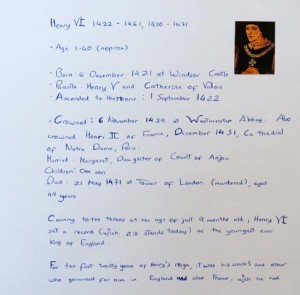 Henry VI 1422 - 1461, 1470 - 1471
• Age 1-40 (approx)
• Born: 6 December 1421 at Windsor Castle
• Parents: Henry V and Catherine of Valois
• Ascended to the throne: 1 September 1422
• Crowned: 6 November 1429 at Westminster Abbey. Also
crowned Henri II of France, December 1431, Cathedral
of Notre Dame, Paris
Married: Margaret, Daughter of Count of Anjou
Children: One son
Died: 21 May 1471 at Tower of London (murdered), aged
49 years
Coming to the throne at the age of just 9 months old, Henry VI
set a record (which still stands today) as the youngest ever
King of England.
For the first twenty years of Henry's reign, it was his uncles and other
who governed for him in England and also France, which he had